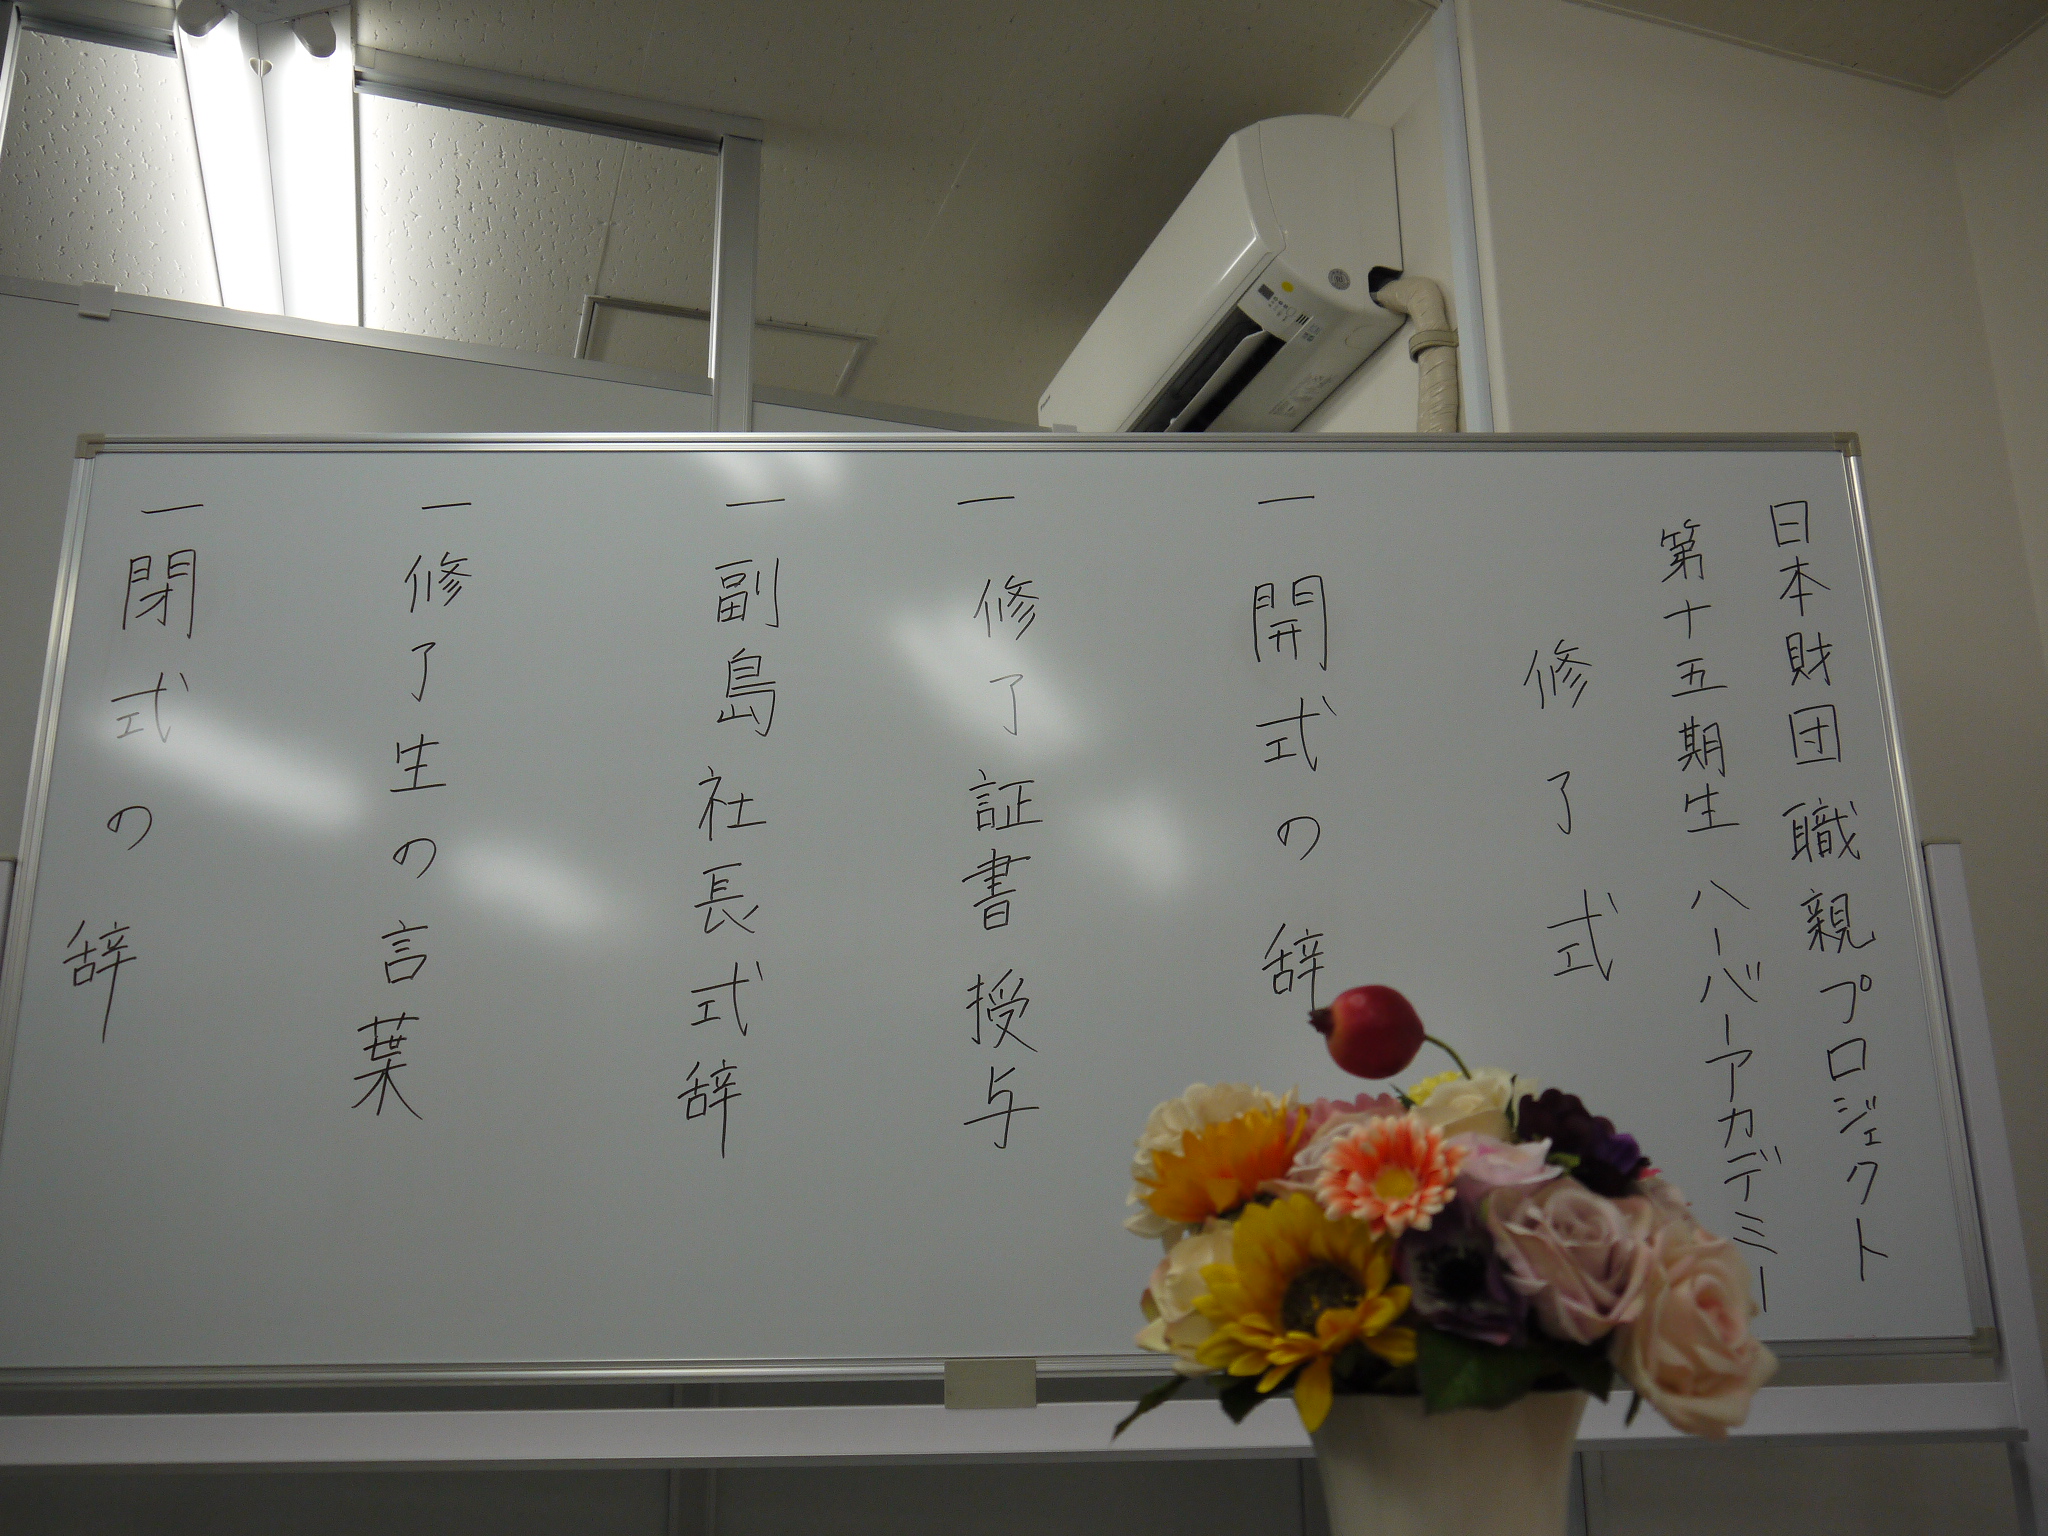 日本財団職親プロジェクト
第十五期生 ハーバーアカデミー
修了式
一 開式の辞
一 修了証書授与
一 副島社長式辞
一 修了生の言葉
一 閉式の辞